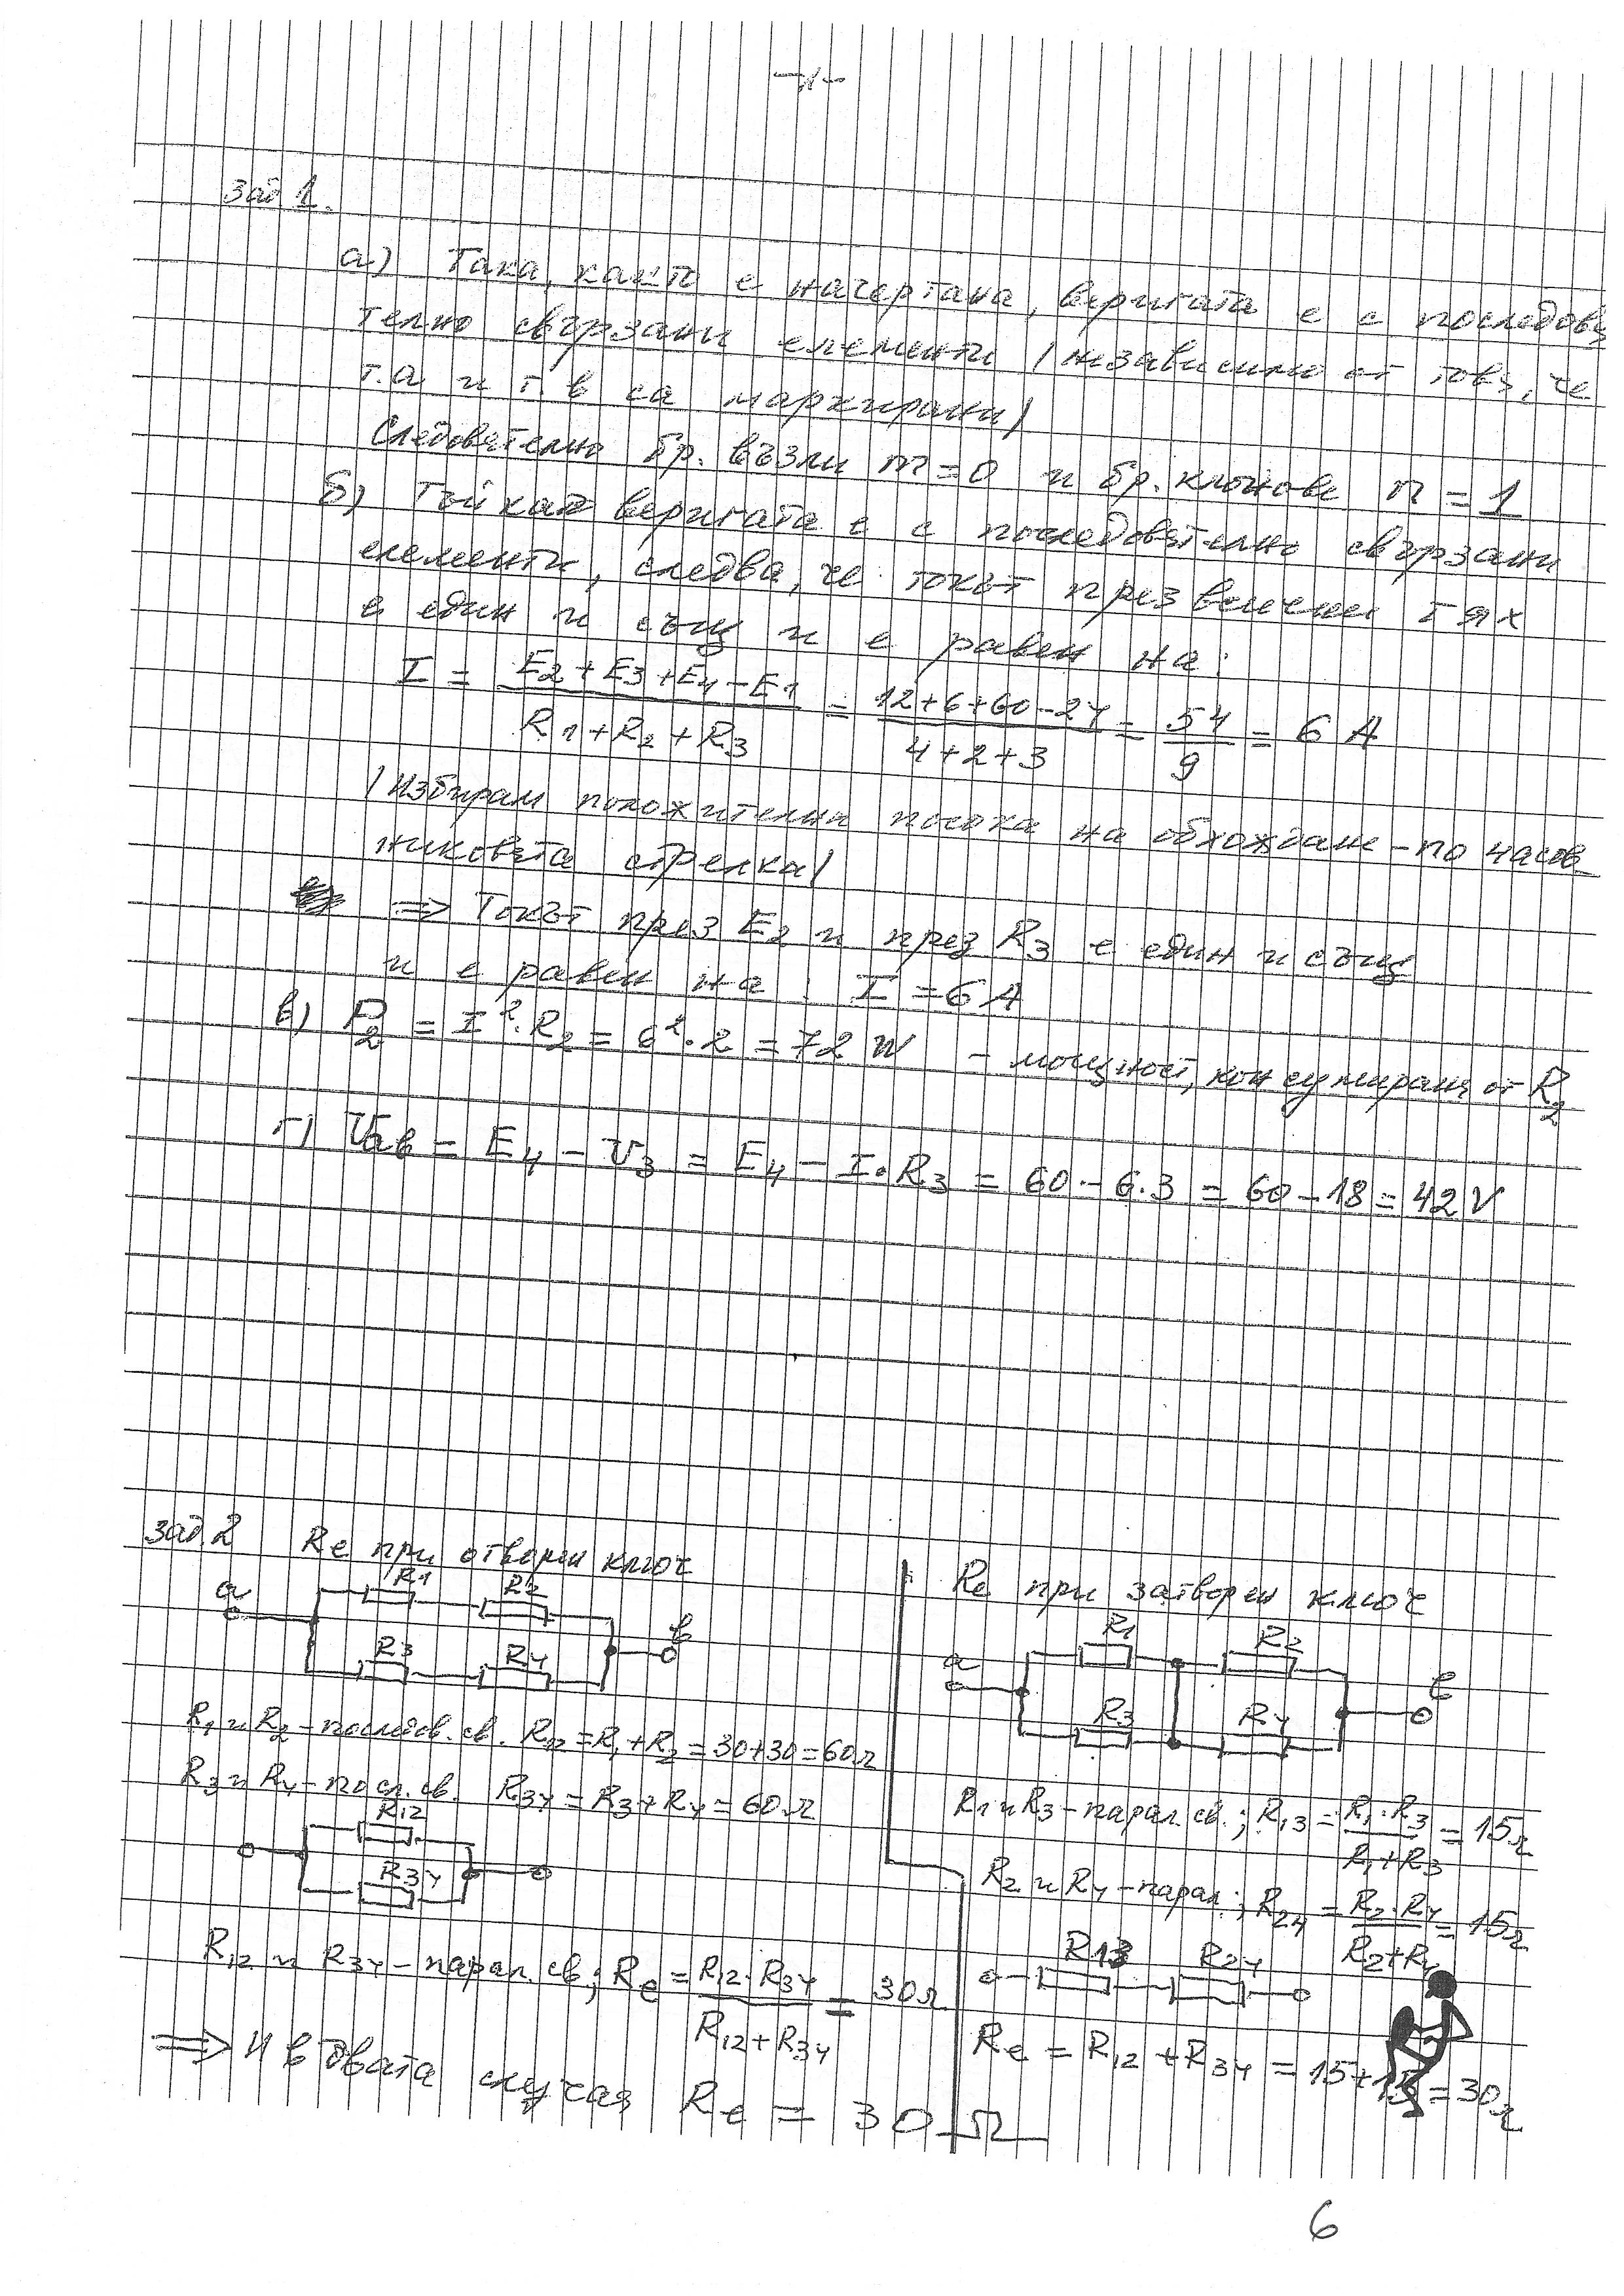 -1-
Зад 1.
а) Така, както е начертана, веригата е с последова
телно свързани елементи /независимо от това, че
т. а и т. в са маркирани/
Следователно бр. възли m = 0 и бр. клонове n = 1
б) Тъй като веригата е с последователно свързани
елементи, следва, че токът през всички тях
е един и същ и е равен на:
I = (E2 + E3 + E4 - E1)/(R1 + R2 + R3) = (12 + 6 + 60 - 24)/(4 + 2 + 3) = 54/9 = 6 A
/Избирам положителна посока на обхождане - по часов
никовата стрелка/
=> Токът през E2 и през R3 е един и същ
и е равен на: I = 6 A
в) P2 = I². R2 = 6². 2 = 72 W - мощност, консумирана от R2
г) Uав = E4 - U3 = E4 - I. R3 = 60 - 6.3 = 60 - 18 = 42 V
зад. 2 Rе при отворен ключ
a R1 R2
R3 R4 в
R1 и R2 - последов. св. R12 = R1 + R2 = 30 + 30 = 60Ω
R3 и R4 - посл. св. R34 = R3 + R4 = 60Ω
R12
R34
R12 и R34 - парал. св.; Re = R12. R34/(R12 + R34) = 30Ω
Rе при затворен ключ
R1 R2
a в
R3 R4
R1 и R3 - парал. св.; R13 = R1. R3/(R1 + R3) = 15Ω
R2 и R4 - парал.; R24 = R2. R4/(R2 + R4) = 15Ω
R13 R24
Re = R12 + R34 = 15 + 15 = 30Ω
=> И в двата случая Re = 30 Ω
6